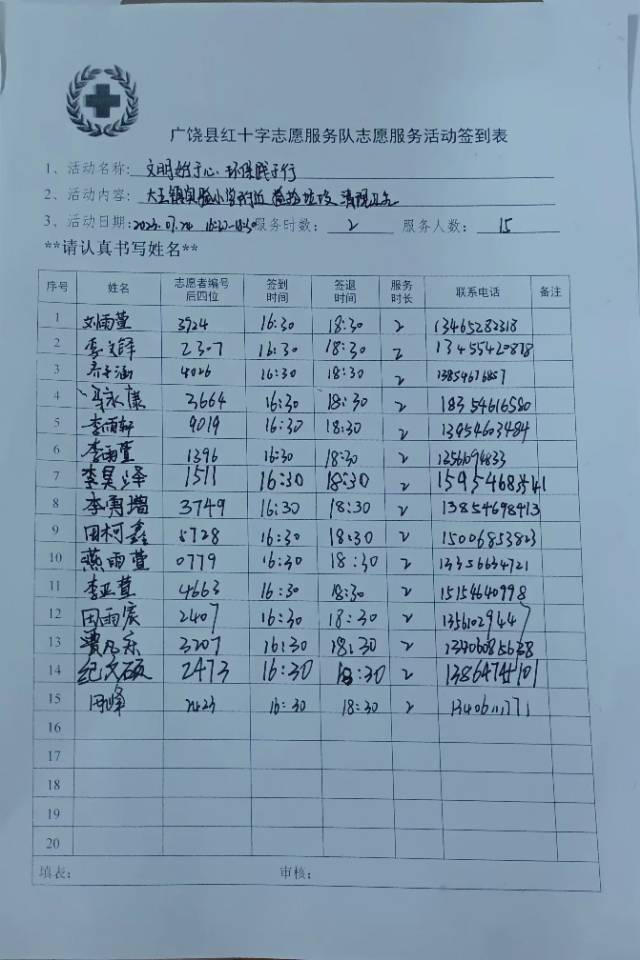 广饶县红十字志愿服务队志愿服务活动签到表
1、活动名称: 文明始于心 环保践于行
2、活动内容: 大王镇实验小学附近 捡拾垃圾 清理卫生
3、活动日期: 2023.07.24 16:30-18:30 服务时数: 2 服务人数: 15
**请认真书写姓名**
序号 姓名 志愿者编号后四位 签到时间 签退时间 服务时长 联系电话 备注
1 刘雨萱 3924 16:30 18:30 2 13465282318
2 李文锋 2307 16:30 18:30 2 13455420878
3 4026 16:30 18:30 2 13854676857
4 永康 3664 16:30 18:30 2 18354616580
5 李雨轩 9019 16:30 18:30 2 13954603484
6 李雨萱 1396 16:30 18:30 2 13561094833
7 李昊泽 1511 16:30 18:30 2
8 李勇增 3749 16:30 18:30 2 13854698413
9 田柯鑫 5728 16:30 18:30 2 15006853823
10 燕雨萱 0779 16:30 18:30 2 13356634721
11 李亚萱 4663 16:30 18:30 2 15154640998
12 田雨宸 2407 16:30 18:30 2 13561029447
13 3207 16:30 18:30 2
14 纪文硕 2473 16:30 18:30 2
15 周峰 2423 16:30 18:30 2 13406111771
16
17
18
19
20
填表: 审核: